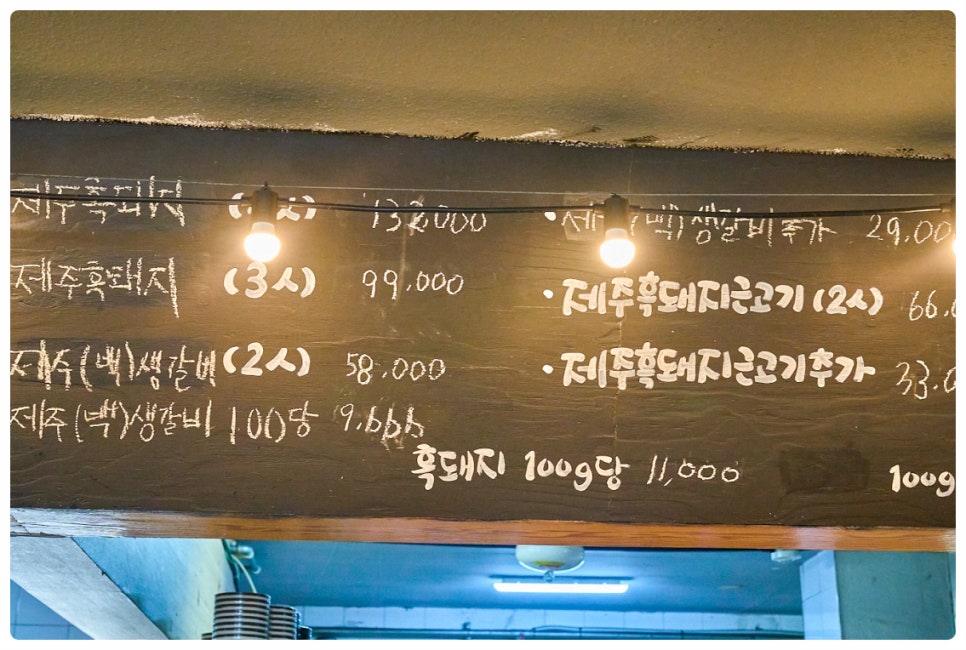 제주흑돼지 132000
제주흑돼지 (3시) 99,000
제주(백)생갈비 (2시) 58,000
제주(백)생갈비 100당 9.666
흑돼지 100g당 11,000
• 제주(백)생갈비추가 29,00
• 제주흑돼지근고기 (2시) 66.
• 제주흑돼지근고기추가 33.0
100g